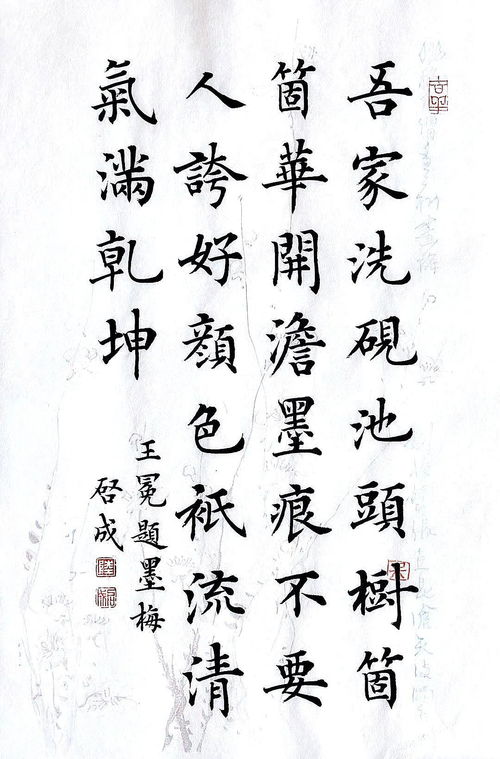 吾家洗硯池頭樹箇
箇華開澹墨痕不要
人誇好顔色祇流清
氣滿乾坤
王冕題墨梅
啓成